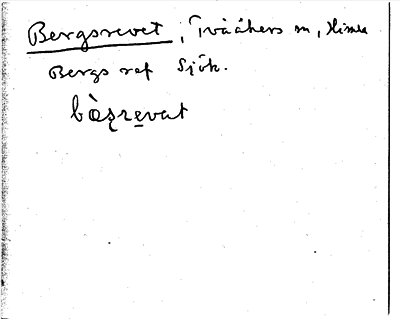 Bergsrevet, Tvååkers sn, Himle
Bergs ref Sjök.
bæ̀ʂre̲vat